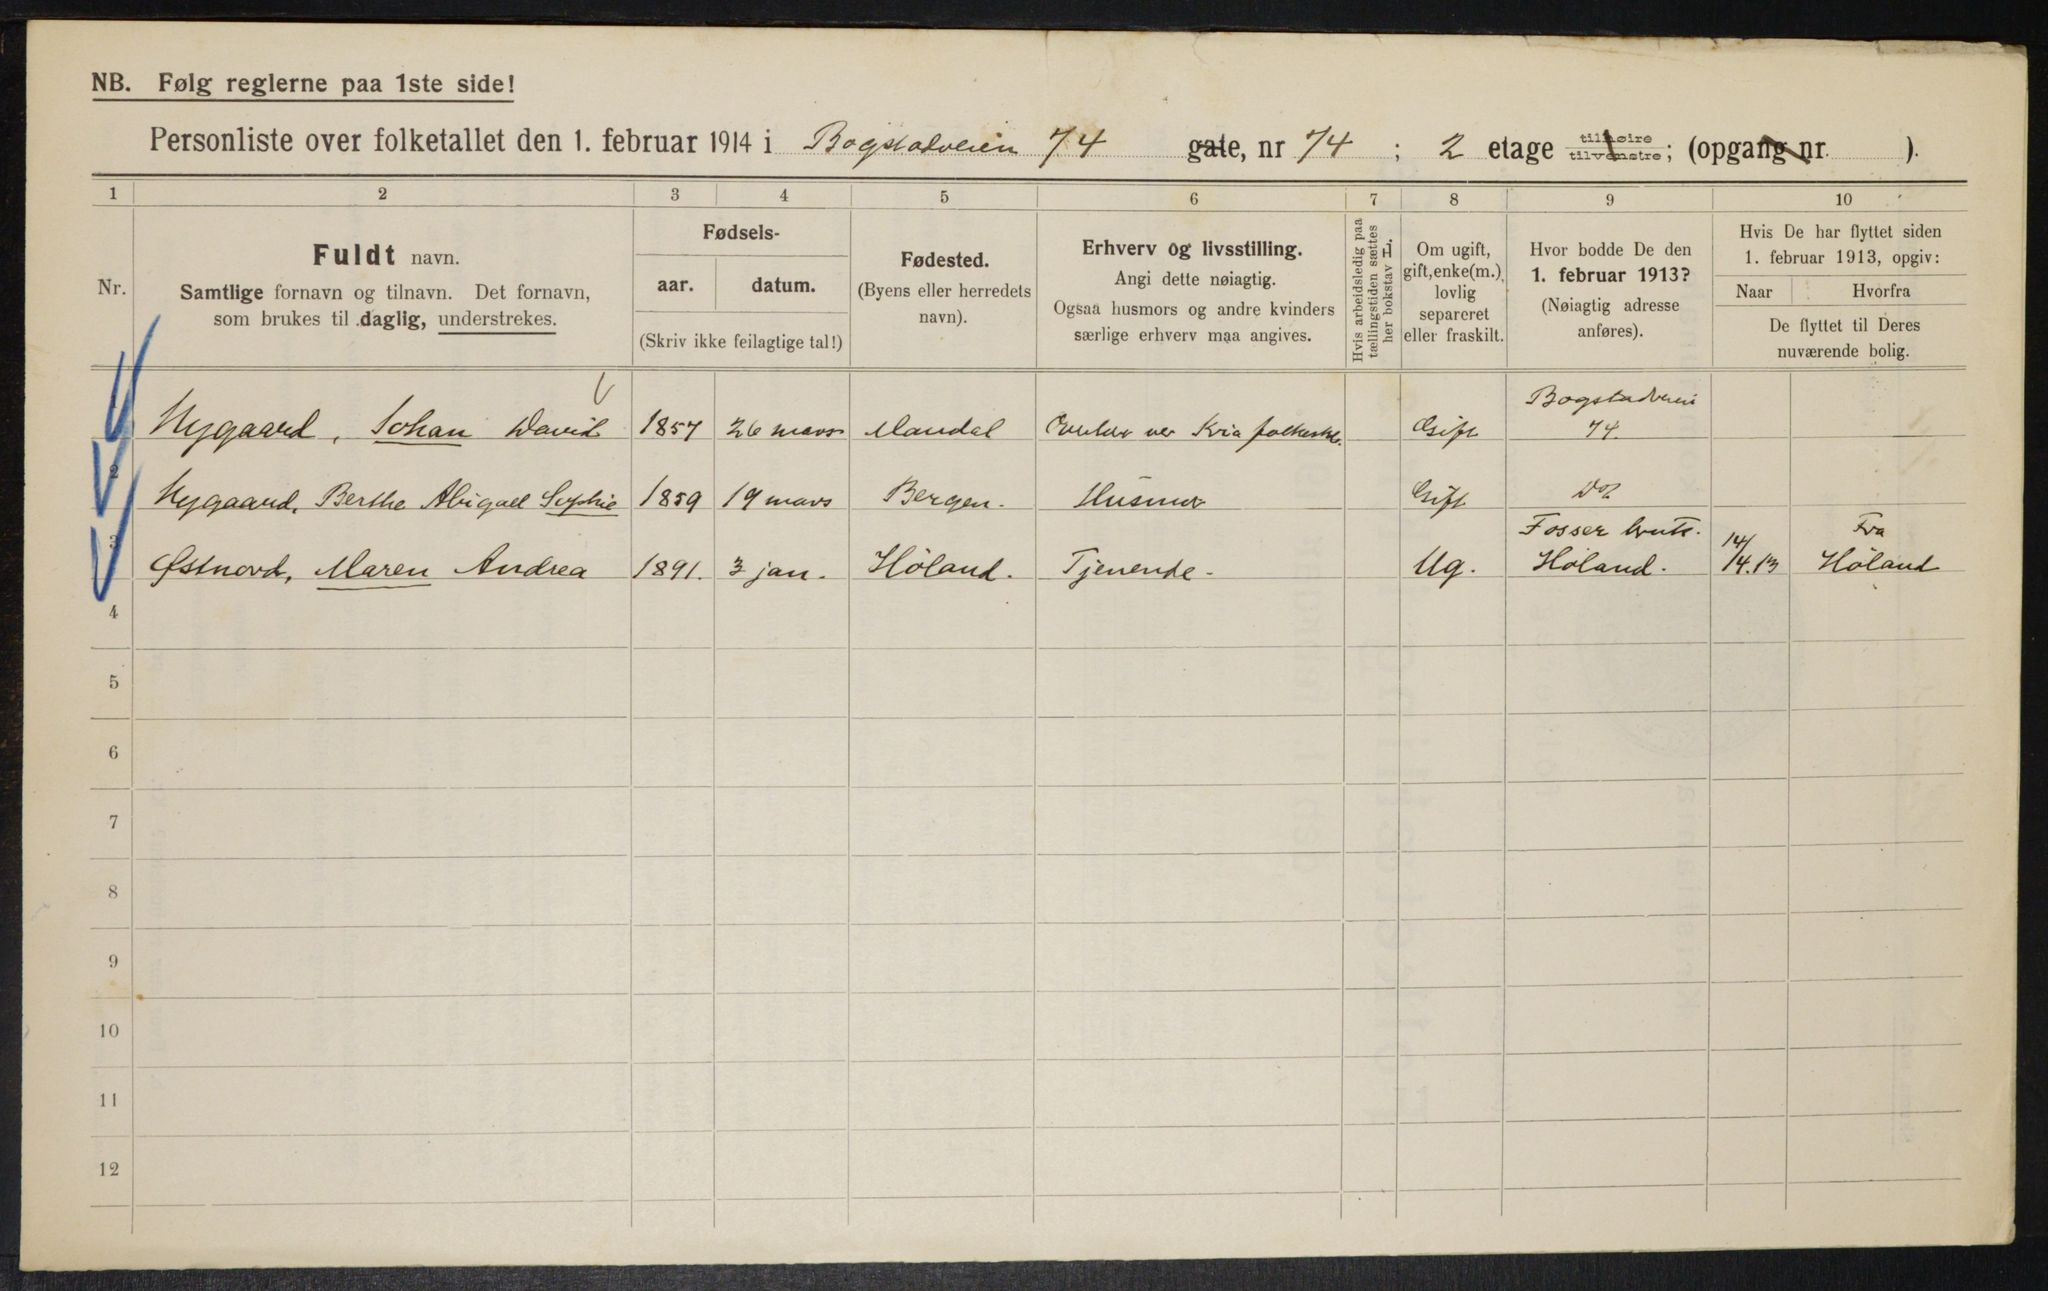 NB. Følg reglerne paa 1ste side!
Personliste over folketallet den 1. februar 1914 i Bogstadveien 74 gate, nr 74 ; 2 etage tilhøire tilvenstre; (opgang nr. ).
1 2 3 4 5 6 7 8 9 10
Nr.
Fuldt navn.
Samtlige fornavn og tilnavn. Det fornavn,
som brukes til daglig, understrekes.
Fødsels-
aar. datum.
(Skriv ikke feilagtige tal!)
Fødested.
(Byens eller herredets
navn).
Erhverv og livsstilling.
Angi dette nøiagtig.
Ogsaa husmors og andre kvinders
særlige erhverv maa angives.
Hvis arbeidsledig paa
tællingstiden sættes
her bokstav L
Om ugift,
gift, enke(m.),
lovlig
separeret
eller fraskilt.
Hvor bodde De den
1. februar 1913?
(Nøiagtig adresse
anføres).
Hvis De har flyttet siden
1. februar 1913, opgiv:
Naar Hvorfra
De flyttet til Deres
nuværende bolig.
1 Nygaard, Johan David 1857 26 mars Mandal ved Kria folkeskl. Gift Bogstadveien 74.
2 Nygaard, Berthe Abigael Sophie 1859 19 mars Bergen. Husmor Gift Do
3 Østnord, Maren Andrea 1891. 3 jan. Höland. Tjenende. Ug. Fosser Höland. 14/14.13 Fra Höland
4
5
6
7
8
9
10
11
12